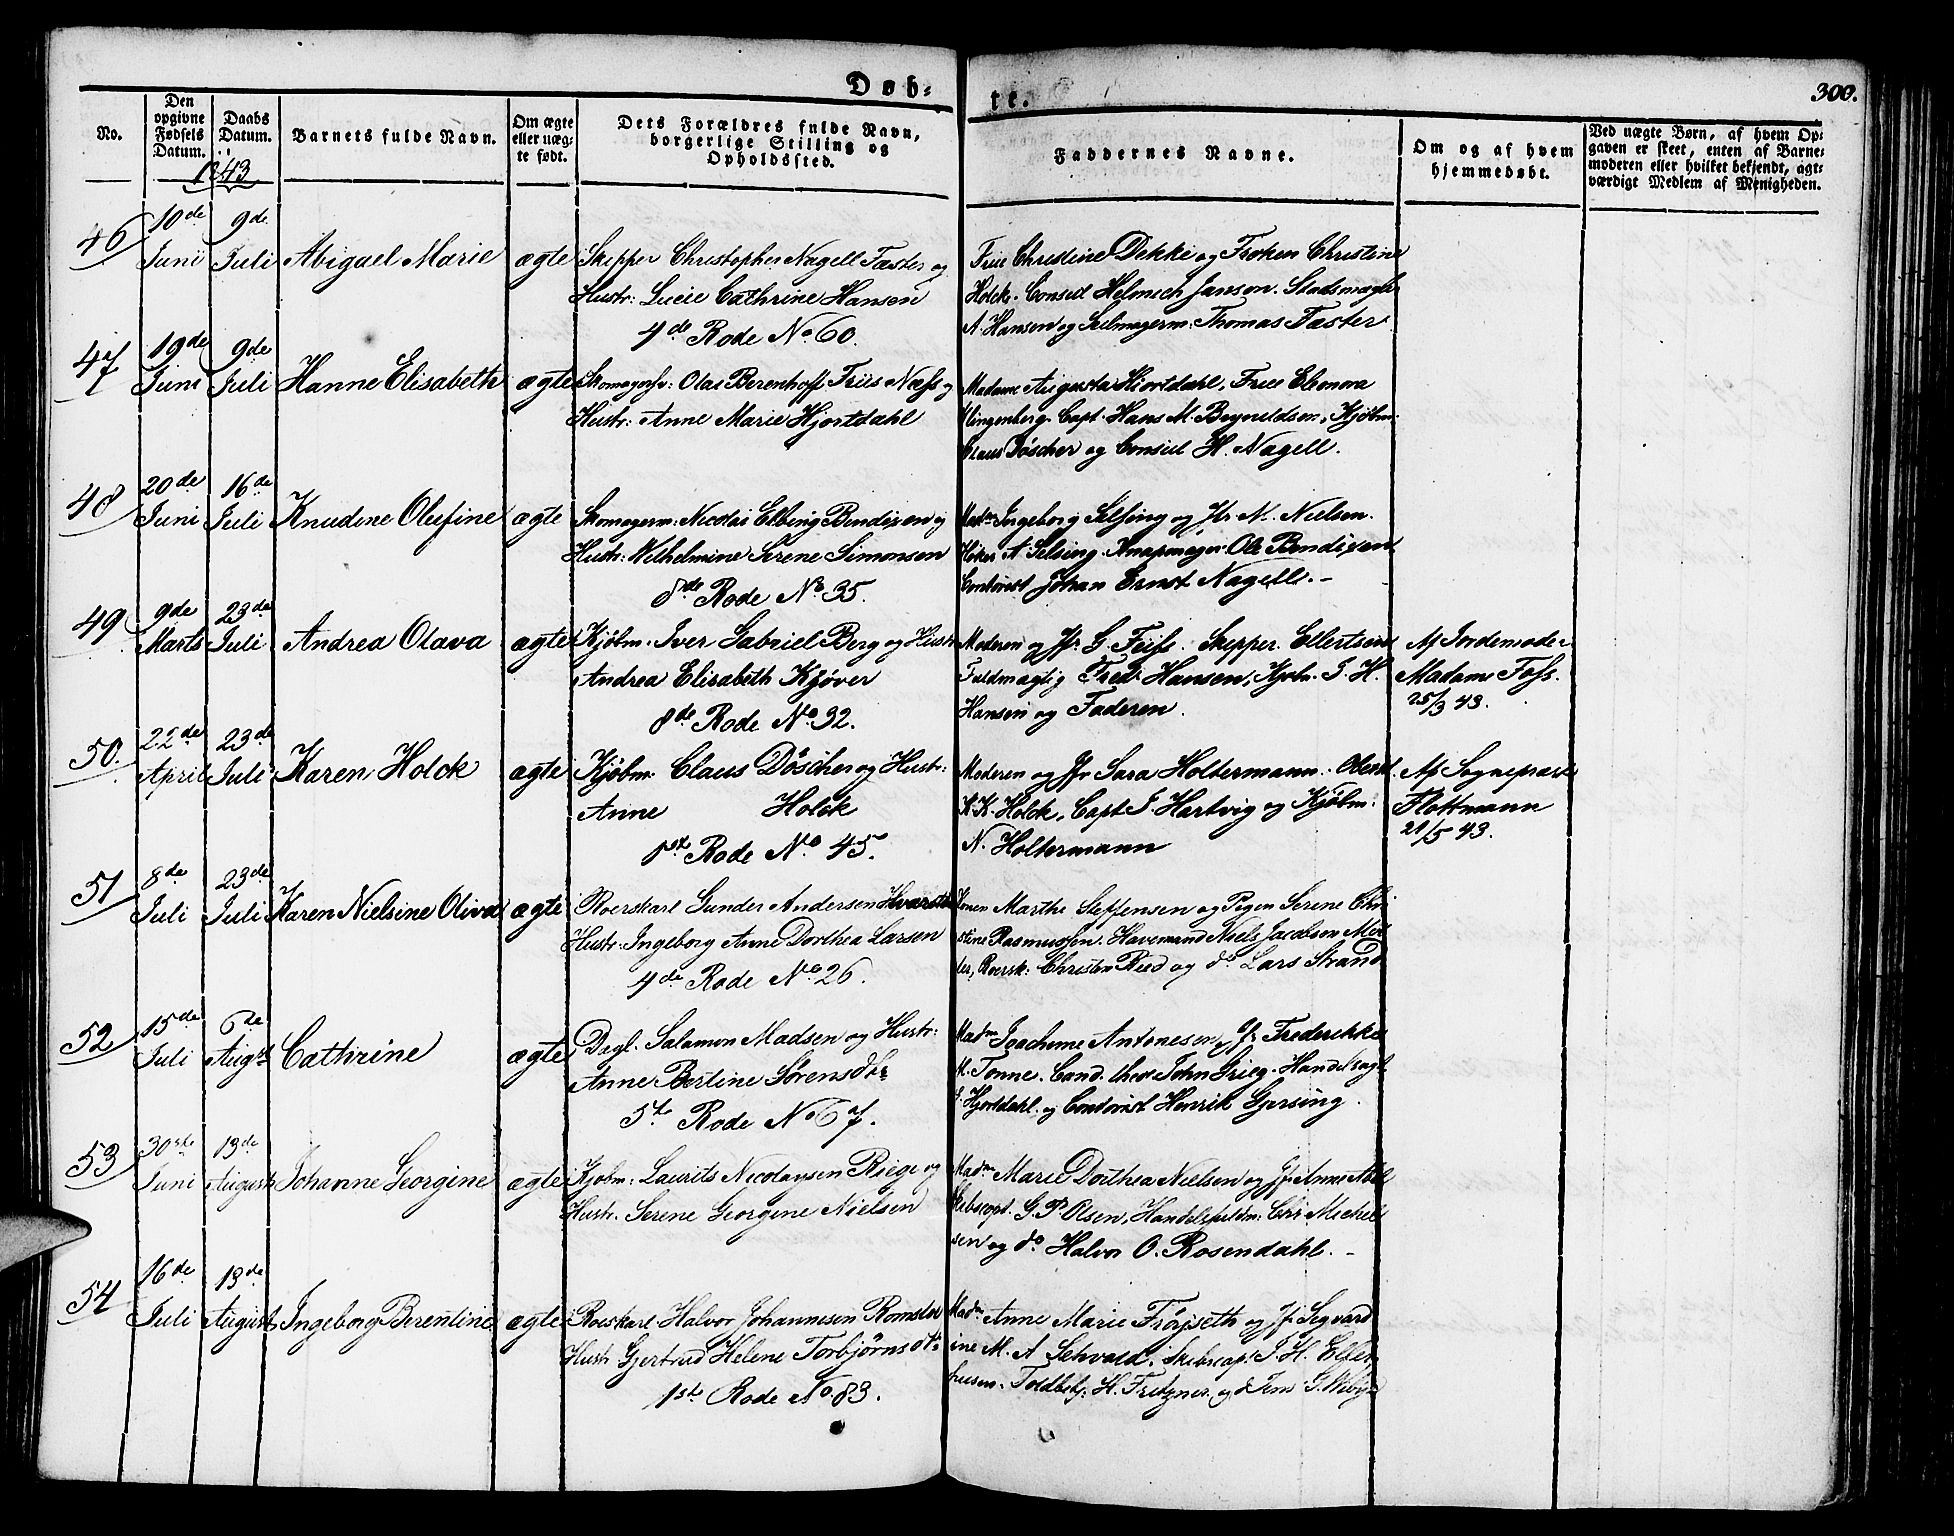 Døb-
te.
300.
No.
Den opgivne Fødsels Datum.
Daabs Datum.
Barnets fulde Navn.
Om ægte eller uæg-te født.
Dets Forældres fulde Navn, borgerlige Stilling og Opholdssted.
Faddernes Navne.
Om og af hvem hjemmedøbt.
Ved uægte Børn, af hvem Op-
gaven er skeet, enten af Barne-
moderen eller hvilket bekjendt, agt-
værdigt Medlem af Menigheden.
1843
46 10de Juni 9de Juli Abigael Marie ægte
Skipper Christopher Nagell Faster og
Hustr: Lucie Cathrine Hansen
4de Rode No 60.
Frue Christine Dekke og Frøken Christine
Holck. Consul Helmich Janson. Stadsmægler
A. Hansen og Seilmagerm: Thomas Faster
47 19de Juni 9de Juli Hanne Elisabeth ægte
Skomagersv: Olas Berenhoff Friis Næss og
Hustr: Anne Marie Hjortdahl
Madame Augusta Hiortdahl, Frue Elenora
Klingenberg. Capt. Hans M. Beyneldsen, Kjøbm:
Claus Döscher og Consul H. Nagell.
48 20de Juni 16de Juli Knudine Olufine ægte
Skomagerm: Nicolai Elbing Bendixen og
Hustr: Wilhelmine Serene Simonsen
8de Rode No 35.
Madm Ingeborg Selsing og Jfr N. Nielsen.
Høker A Selsing. Knapmager Ole Bendixen
Contorist Johan Ernst Nagell. -
49 9de Marts 23de Juli Andrea Olava ægte
Kjøbm. Iver Gabriel Berg og Hustr
Andrea Elisabeth Kjøver
8de Rode No. 32.
Moderen og Jfr G. Friis. Skipper Ellertsen
Fuldmægtig Fred: Hansen, Kjøbm. J. H.
Hansen og Faderen.
Af Jordemoder
Madam Foss.
25/3 43.
50. 22de April 23de Juli Karen Holck ægte
Kjøbm: Claus Döscher og Hustr:
Anne Holck
1st Rode No 45.
Moderen og Jfr Sara Holtermann.
K. K. Holck, Capt J. Hartvig og Kjøbm:
N. Holtermann
Af Sognepræst
Flottmann
21/5 43.
51 8de Juli 23de Juli Karen Nielsine Oliva ægte
Roerskarl Gunder Andersen
Hustr: Ingeborg Anne Dorthea Larsen
4de Rode No 26.
Konen Marthe Steffensen og Pigen Serene Chri
stine Rasmussen. Havemand Niels Jacobsen
Roersk: Christen Ried og do Lars Strand
52 15de Juli 6de Augst Cathrine ægte
Dagl. Salamon Madsen og Hustr:
Anne Bertine Sørensdtr
5te Rode No 67.
Madm Joachime Antonesen, Jfr Frederikke
M. Tonne. Cand. theol John Grieg. Handelsagt
Hjortdahl. og Contorist Henrik Gjersing.
53 30ste Juni 13de August Johanne Georgine ægte
Kjøbm: Laurits Nicolaysen Riege og
Hustr. Serene Georgine Nielsen
Madm Marie Dorthea Nielsen og Jfr Anne Abel
Skibscapt. G. P. Olsen, Handelsfuldm: Chr: Michel
sen og do Halvor O. Rosendahl. -
54 16de Juli 13de August Ingeborg Berentine ægte
Roerskarl Halvor Johannesen
Hustr Gjertrud Helene Torbjørnsdtr
1st Rode No. 83.
Madm Anne Marie Frøyseth og Jfr Segvard
ine M. A Sehvold, Skibscapt J. H. Elfer
husen. Toldbetj. H. Fritzner og